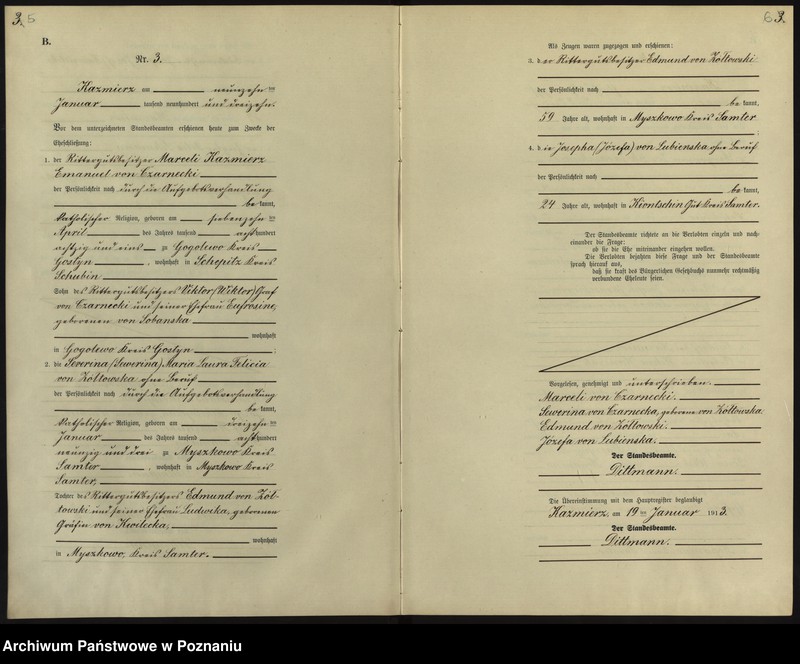 3. 5
B.
Nr. 3.
Kazmierz am neunzehnten
Januar tausend neunhundert und dreizehn.
Vor dem unterzeichneten Standesbeamten erschienen heute zum Zwecke der
Eheschließung:
1. der Rittergutsbesitzer Marceli Kazmierz
Emanuel von Czarnecki
der Persönlichkeit nach durch die Aufgebotsverhandlung
be kannt,
katholischer Religion, geboren am siebenzehnten
April des Jahres tausend achthundert
achtzig und eins zu Gogolewo Kreis
Gostyn, wohnhaft in Schepitz Kreis
Schubin
Sohn des Rittergutsbesitzers Viktor/Wiktor/Graf
von Czarnecki und seiner Ehefrau Eufrosine,
geborenen von Sobanska
wohnhaft
in Gogolewo Kreis Gostyn;
2. die Severina/Sewerina/Maria Laura Felicia
von Żółtowska ohne Beruf
der Persönlichkeit nach durch die Aufgebotsverhandlung
be kannt,
katholischer Religion, geboren am dreizehnten
Januar des Jahres tausend achthundert
neunzig und drei zu Myszkowo Kreis
Samter, wohnhaft in Myszkowo Kreis
Samter,
Tochter des Rittergutsbesitzers Edmund von Żół-
towski und seiner Ehefrau Ludwika, geborenen
Gräfin von Kwilecka,
wohnhaft
in Myszkowo, Kreis Samter.
6 3.
Als Zeugen waren zugezogen und erschienen:
3. der Rittergutsbesitzer Edmund von Żółtowski
der Persönlichkeit nach
be kannt,
59 Jahre alt, wohnhaft in Myszkowo Kreis Samter
;
4. die Josepha/Józefa/von Lubienska ohne Beruf
der Persönlichkeit nach
be kannt,
24 Jahre alt, wohnhaft in Kiontschin Gut Kreis Samter.
Der Standesbeamte richtete an die Verlobten einzeln und nach-
einander die Frage:
ob sie die Ehe miteinander eingehen wollen.
Die Verlobten bejahten diese Frage und der Standesbeamte
sprach hierauf aus,
daß sie kraft des Bürgerlichen Gesetzbuchs nunmehr rechtmäßig
verbundene Eheleute seien.
Vorgelesen, genehmigt und unterschrieben.
Marceli von Czarnecki.
Sewerina von Czarnecka, geborene von Żółtowska.
Edmund von Żółtowski.
Józefa von Lubienska.
Der Standesbeamte.
Dittmann.
Die Übereinstimmung mit dem Hauptregister beglaubigt
Kazmierz, am 19ten Januar 1913.
Der Standesbeamte.
Dittmann.
Archiwum Państwowe w Poznaniu